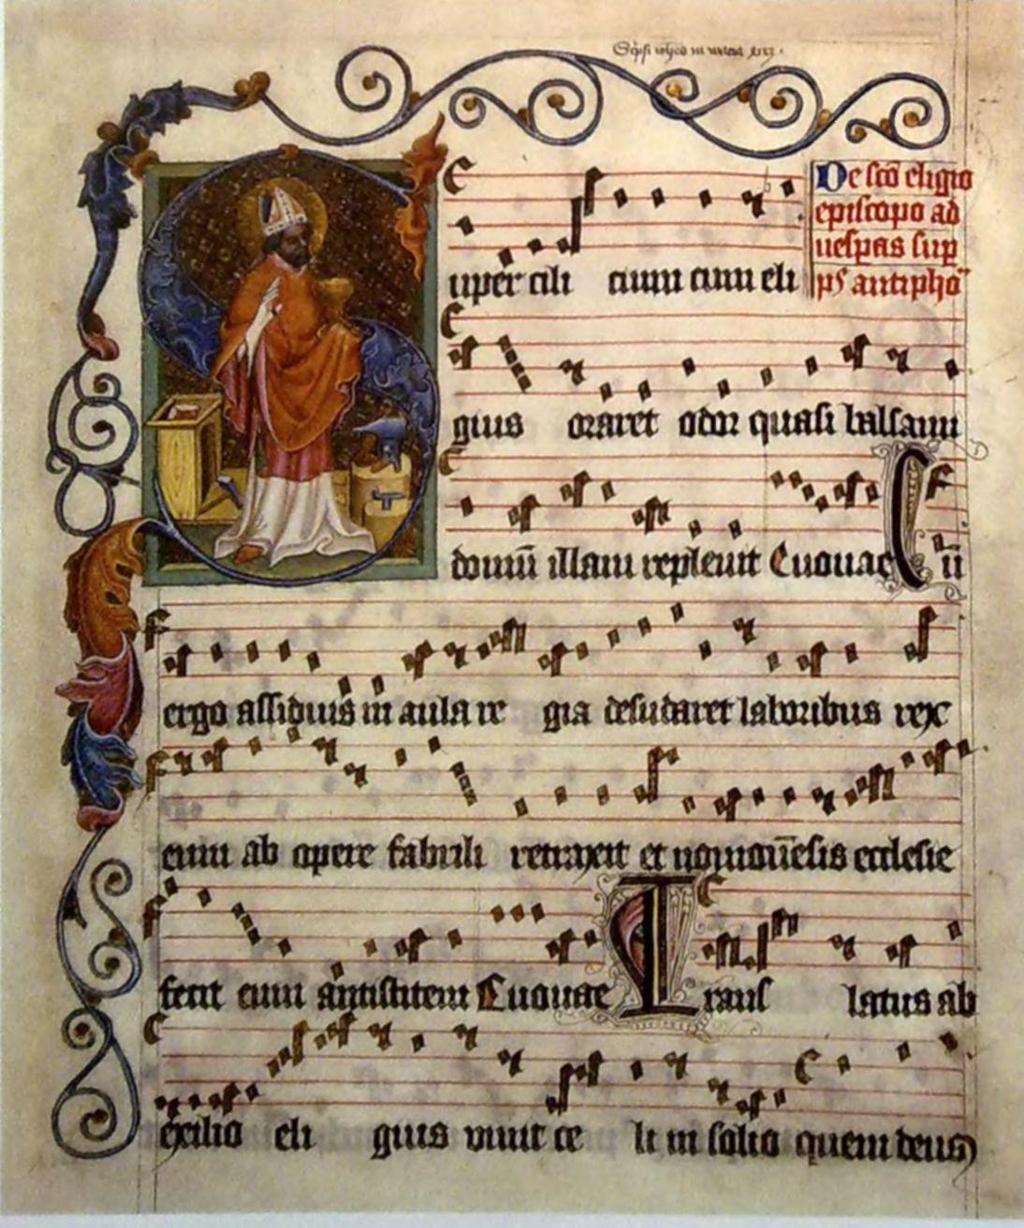 De sco eligio
episcopo ad
uespas sup
ps antipho
uper cili cium cum eli
gius oraret odor quasi balsami
domū illam repleuit Euouae Cū
ergo assiduis in aula re gia desudaret laboribus rex
eum ab opere fabrili retraxit et nouiomēsis ecclesie
fecit eum antistitem Euouae Trans latus ab
exilio eli gius uiuit ce li in solio quem deus